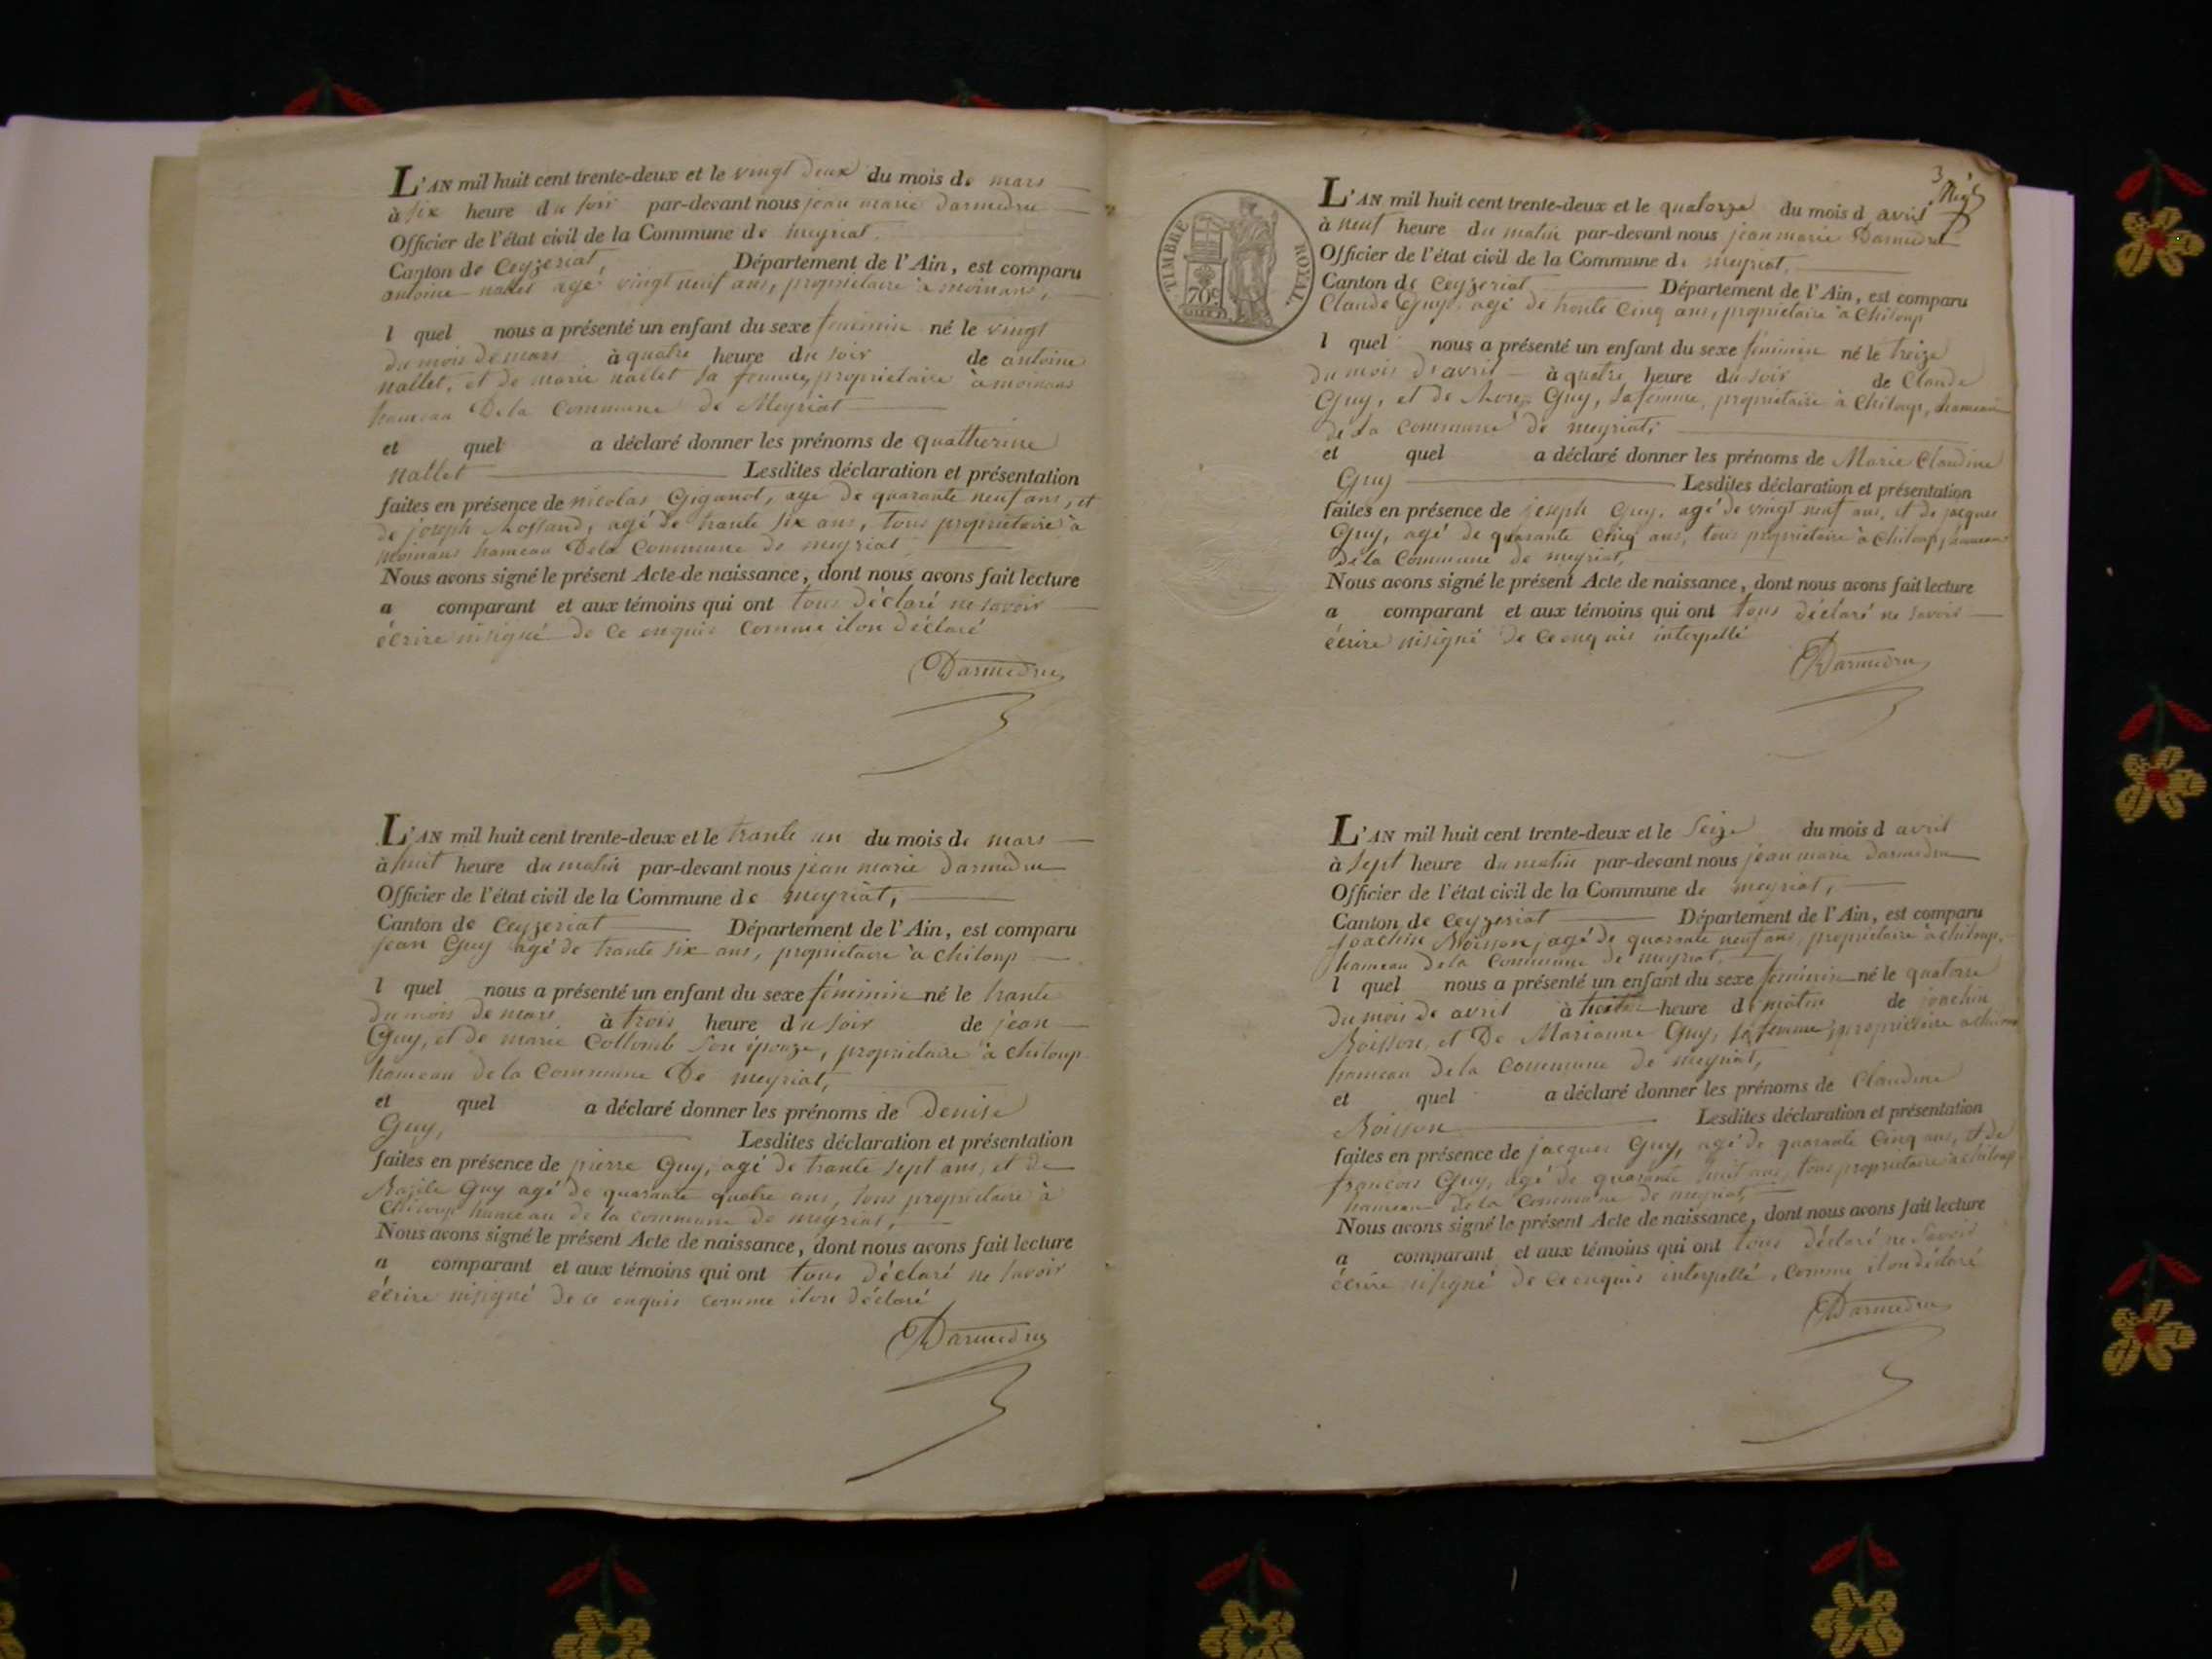 L'AN mil huit cent trente-deux et le vingt deux du mois de mars
à six heure du soir par-devant nous jean marie darmedru
Officier de l'état civil de la Commune de meyriat.
Canton de Ceyzeriat, Département de l'Ain, est comparu
antoine nallet agé vingt neuf ans, propriétaire a moinans,
l quel nous a présenté un enfant du sexe feminin né le vingt
du mois de mars à quatre heure du soir de antoine
nallet, et de marie nallet sa femme, propriétaire à moinans
hameau De la Commune de Meyriat
et quel a déclaré donner les prénoms de quatherine
nallet Lesdites déclaration et présentation
faites en présence de nicolas Gigandot, age de quarante neuf ans, et
de joseph agé de trante six ans, tous propriétaire à
moinans hameau Dela Commune de meyriat
Nous avons signé le présent Acte de naissance, dont nous avons fait lecture
a comparant et aux témoins qui ont tous déclaré ne savoir
écrire nisigné de ce enquis comme ilon déclaré
Darmedru
L'AN mil huit cent trente-deux et le trante un du mois de mars
à huit heure du matin par-devant nous jean marie darmedru
Officier de l'état civil de la Commune de meyriat,
Canton de Ceyzeriat Département de l'Ain, est comparu
jean Guy agé de trante six ans, propriétaire à chiloup
l quel nous a présenté un enfant du sexe féminin né le trante
du mois de mars à trois heure du soir de jean
Guy, et de marie Collomb son épouze, propriétaire à chiloup
hameau dela Commune De meyriat,
et quel a déclaré donner les prénoms de Denise
Guy, Lesdites déclaration et présentation
faites en présence de pierre Guy, agé de trante sept ans, et de
Guy agé de quarante quatre ans, tous propriétaire à
Chiloup hameau de la commune de meyriat,
Nous avons signé le présent Acte de naissance, dont nous avons fait lecture
a comparant et aux témoins qui ont tous déclaré ne savoir
écrire nisigné de ce enquis comme ilon déclaré
Darmedru
3
TIMBRE ROYAL.
70c
L'AN mil huit cent trente-deux et le quatorze du mois d avril
à neuf heure du matin par-devant nous jean marie Darmedru
Officier de l'état civil de la Commune de meyriat,
Canton de Ceyzeriat Département de l'Ain, est comparu
Claude Guy, agé de trente Cinq ans, propriétaire à Chiloup
l quel nous a présenté un enfant du sexe féminin né le treize
du mois d'avril à quatre heure du soir de Claude
Guy, et de Guy, sa femme, propriétaire à Chiloup, hameau
de la Commune de meyriat,
et quel a déclaré donner les prénoms de Marie Claudine
Guy Lesdites déclaration et présentation
faites en présence de joseph Guy, agé de vingt neuf ans, et de jacques
Guy, agé de quarante Cinq ans, tous propriétaire à Chiloup, hameau
dela Commune de meyriat,
Nous avons signé le présent Acte de naissance, dont nous avons fait lecture
a comparant et aux témoins qui ont tous déclaré ne savoir
écrire nisigné de ce enquis interpellé
Darmedru
L'AN mil huit cent trente-deux et le Seize du mois d avril
à Sept heure du matin par-devant nous jean marie darmedru
Officier de l'état civil de la Commune de meyriat,
Canton de Ceyzeriat Département de l'Ain, est comparu
joachin agé de quarante neuf ans, propriétaire à chiloup,
hameau dela Commune de meyriat,
l quel nous a présenté un enfant du sexe féminin né le quatorze
du mois de avril à heure d matin de joachin
et De Marianne Guy, sa femme, propriétaire a chiloup
hameau dela Commune de meyriat,
et quel a déclaré donner les prénoms de Claudine
Lesdites déclaration et présentation
faites en présence de jacques Guy, agé de quarante Cinq ans, et de
françois Guy, agé de quarante huit ans, tous propriétaire à chiloup
hameau dela Commune de meyriat,
Nous avons signé le présent Acte de naissance, dont nous avons fait lecture
a comparant et aux témoins qui ont tous déclaré ne Savoir
écrire nisigné de ce enquis interpellé, comme ilon déclaré
Darmedru